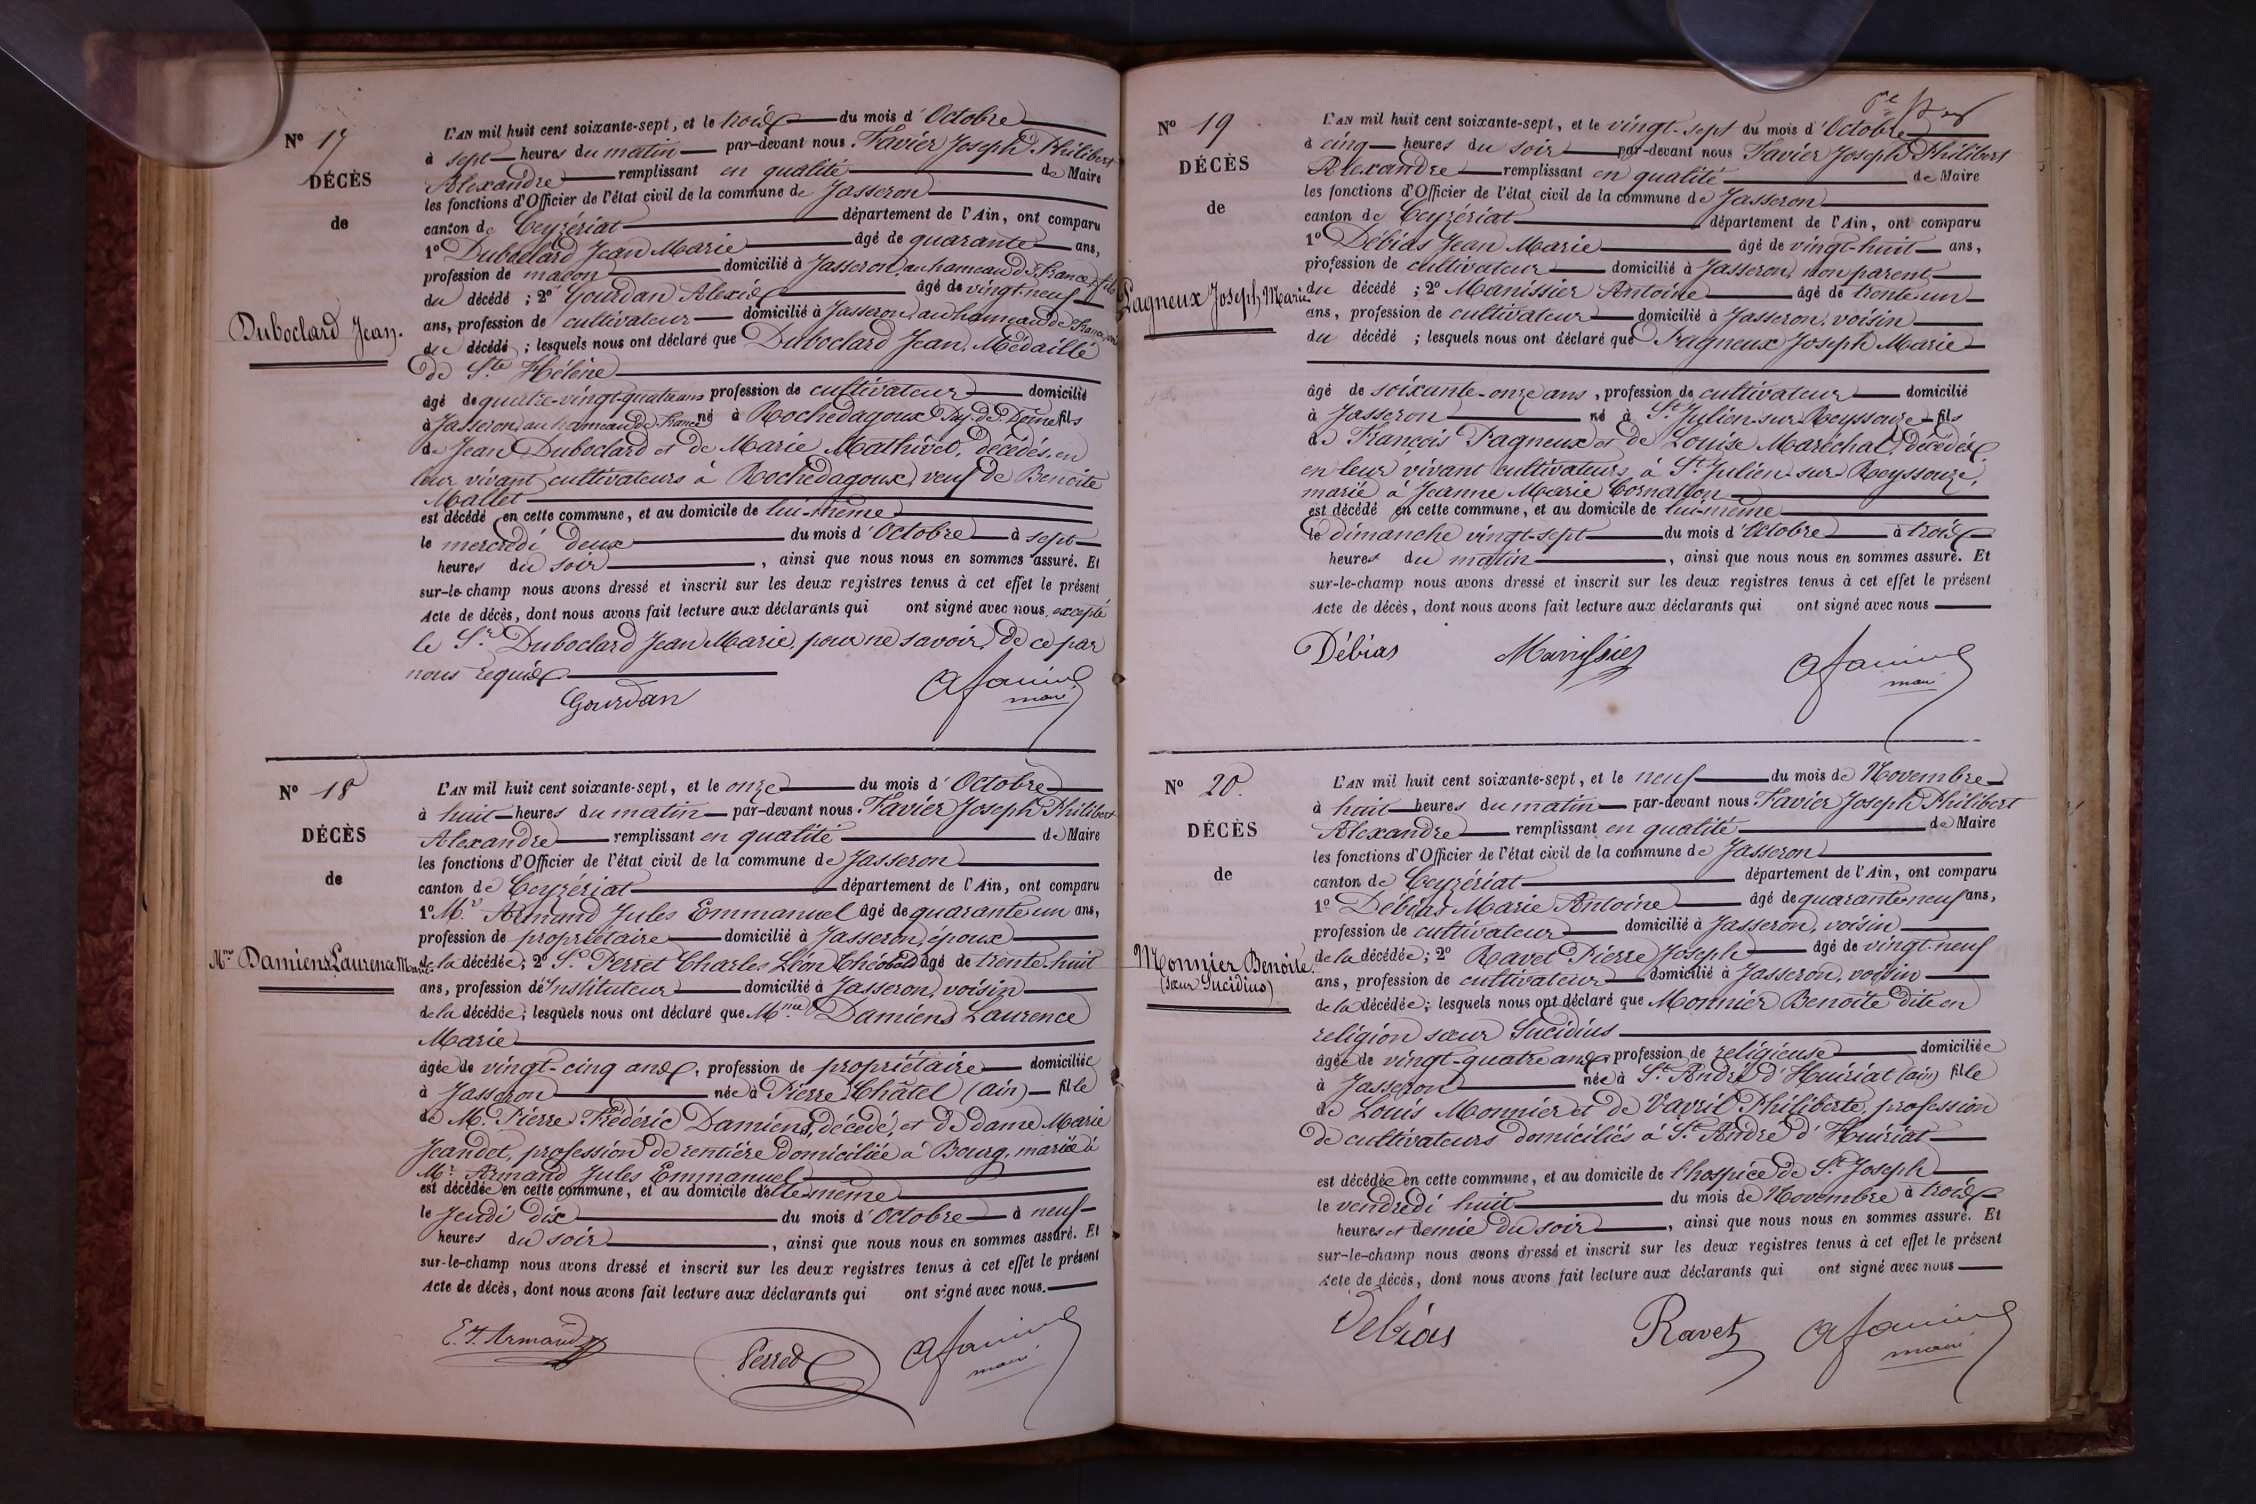 Nº 17
DÉCÈS
de
Duboclard Jean.
L'AN mil huit cent soixante-sept, et le trois du mois d'Octobre
à sept heures du matin par-devant nous Favier Joseph Philibert
Alexandre remplissant en qualité de Maire
les fonctions d'Officier de l'état civil de la commune de Jasseron
canton de Ceyzériat département de l'Ain, ont comparu
1º Duboclard Jean Marie âgé de quarante ans,
profession de maçon domicilié à Jasseron, au hameau de France, fils
du décédé ; 2º Gourdan Alexis âgé de vingt-neuf
ans, profession de cultivateur domicilié à Jasseron, au hameau de France,
du décédé ; lesquels nous ont déclaré que Duboclard Jean, Médaillé
de Ste Hélène
âgé de quatre-vingt-quatre ans profession de cultivateur domicilié
à Jasseron au hameau de France né à Rochedagoux Puy-de-Dôme fils
de Jean Duboclard et de Marie Mathivet, décédés, en
leur vivant cultivateurs à Rochedagoux, veuf de Benoite
Mallet
est décédé en cette commune, et au domicile de lui-même
le mercredi deux du mois d'Octobre à sept
heures du soir, ainsi que nous nous en sommes assuré. Et
sur-le-champ nous avons dressé et inscrit sur les deux registres tenus à cet effet le présent
Acte de décès, dont nous avons fait lecture aux déclarants qui ont signé avec nous, excepté
le Sr Duboclard Jean Marie, pour ne savoir, de ce par
nous requis
Gourdan
A favier
maire
Nº 18
DÉCÈS
de
Mme Damiens Laurence Marie
L'AN mil huit cent soixante-sept, et le onze du mois d'Octobre
à huit heures du matin par-devant nous Favier Joseph Philibert
Alexandre remplissant en qualité de Maire
les fonctions d'Officier de l'état civil de la commune de Jasseron
canton de Ceyzériat département de l'Ain, ont comparu
1º Mr Armand Jules Emmanuel âgé de quarante un ans,
profession de propriétaire domicilié à Jasseron, époux
de la décédée ; 2º Sr Perret Charles Léon Théobald âgé de trente-huit
ans, profession d'Instituteur domicilié à Jasseron, voisin
de la décédée ; lesquels nous ont déclaré que Mme Damiens Laurence
Marie
âgée de vingt-cinq ans, profession de propriétaire domiciliée
à Jasseron née à Pierre Châtel (ain) fille
de Mr Pierre Frédéric Damiens, décédé, et de dame Marie
Jeandet, profession de rentière domiciliée à Bourg, mariée à
Mr Armand Jules Emmanuel
est décédée en cette commune, et au domicile d'elle même
le Jeudi dix du mois d'Octobre à neuf
heures du soir, ainsi que nous nous en sommes assuré. Et
sur-le-champ nous avons dressé et inscrit sur les deux registres tenus à cet effet le présent
Acte de décès, dont nous avons fait lecture aux déclarants qui ont signé avec nous.
E. J. Armand
Perret
A favier
maire
Nº 19
DÉCÈS
de
Pagneux Joseph Marie
L'AN mil huit cent soixante-sept, et le vingt-sept du mois d'Octobre
à cinq heures du soir par-devant nous Favier Joseph Philibert
Alexandre remplissant en qualité de Maire
les fonctions d'Officier de l'état civil de la commune de Jasseron
canton de Ceyzériat département de l'Ain, ont comparu
1º Débias Jean Marie âgé de vingt-huit ans,
profession de cultivateur domicilié à Jasseron, non parent
du décédé ; 2º Manissier Antoine âgé de trente-un
ans, profession de cultivateur domicilié à Jasseron, voisin
du décédé ; lesquels nous ont déclaré que Pagneux Joseph Marie
âgé de soixante-onze ans, profession de cultivateur domicilié
à Jasseron né à St Julien-sur-Reyssouze fils
de François Pagneux et de Louise Maréchal, décédés
en leur vivant cultivateurs, à St Julien-sur Reyssouze,
marié à Jeanne Marie Cornaton
est décédé en cette commune, et au domicile de lui-même
le dimanche vingt-sept du mois d'Octobre à trois
heures du matin, ainsi que nous nous en sommes assuré. Et
sur-le-champ nous avons dressé et inscrit sur les deux registres tenus à cet effet le présent
Acte de décès, dont nous avons fait lecture aux déclarants qui ont signé avec nous
Débias
Manissier
A favier
maire
Nº 20.
DÉCÈS
de
Monnier Benoite.
(sœur Lucidius)
L'AN mil huit cent soixante-sept, et le neuf du mois de Novembre
à huit heures du matin par-devant nous Favier Joseph Philibert
Alexandre remplissant en qualité de Maire
les fonctions d'Officier de l'état civil de la commune de Jasseron
canton de Ceyzériat département de l'Ain, ont comparu
1º Débias Marie Antoine âgé de quarante-neuf ans,
profession de cultivateur domicilié à Jasseron, voisin
de la décédée ; 2º Ravet Pierre Joseph âgé de vingt-neuf
ans, profession de cultivateur domicilié à Jasseron, voisin
de la décédée ; lesquels nous ont déclaré que Monnier Benoite dite en
religion sœur Lucidius
âgée de vingt-quatre ans profession de religieuse domiciliée
à Jasseron née à St André d'Huiriat (ain) fille
de Louis Monnier et de Vavril Philiberte, profession
de cultivateurs domiciliés à St André d'Huiriat
est décédée en cette commune, et au domicile de l'hospice de St Joseph
le vendredi huit du mois de Novembre à trois
heures et demie du soir, ainsi que nous nous en sommes assuré. Et
sur-le-champ nous avons dressé et inscrit sur les deux registres tenus à cet effet le présent
Acte de décès, dont nous avons fait lecture aux déclarants qui ont signé avec nous
Debias
Ravet
A favier
maire